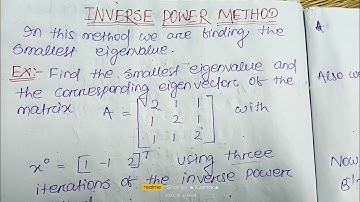 INVERSE POWER METHOD
In this method we are finding the
smallest eigenvalue.
Ex:- Find the smallest eigenvalue and
the corresponding eigenvectors of the
matrix A = [2 1 1
1 2 1
1 1 2] with
x⁰ = [1 -1 2]ᵀ using three
iterations of the inverse power
A
Also
Now
realme Shot by